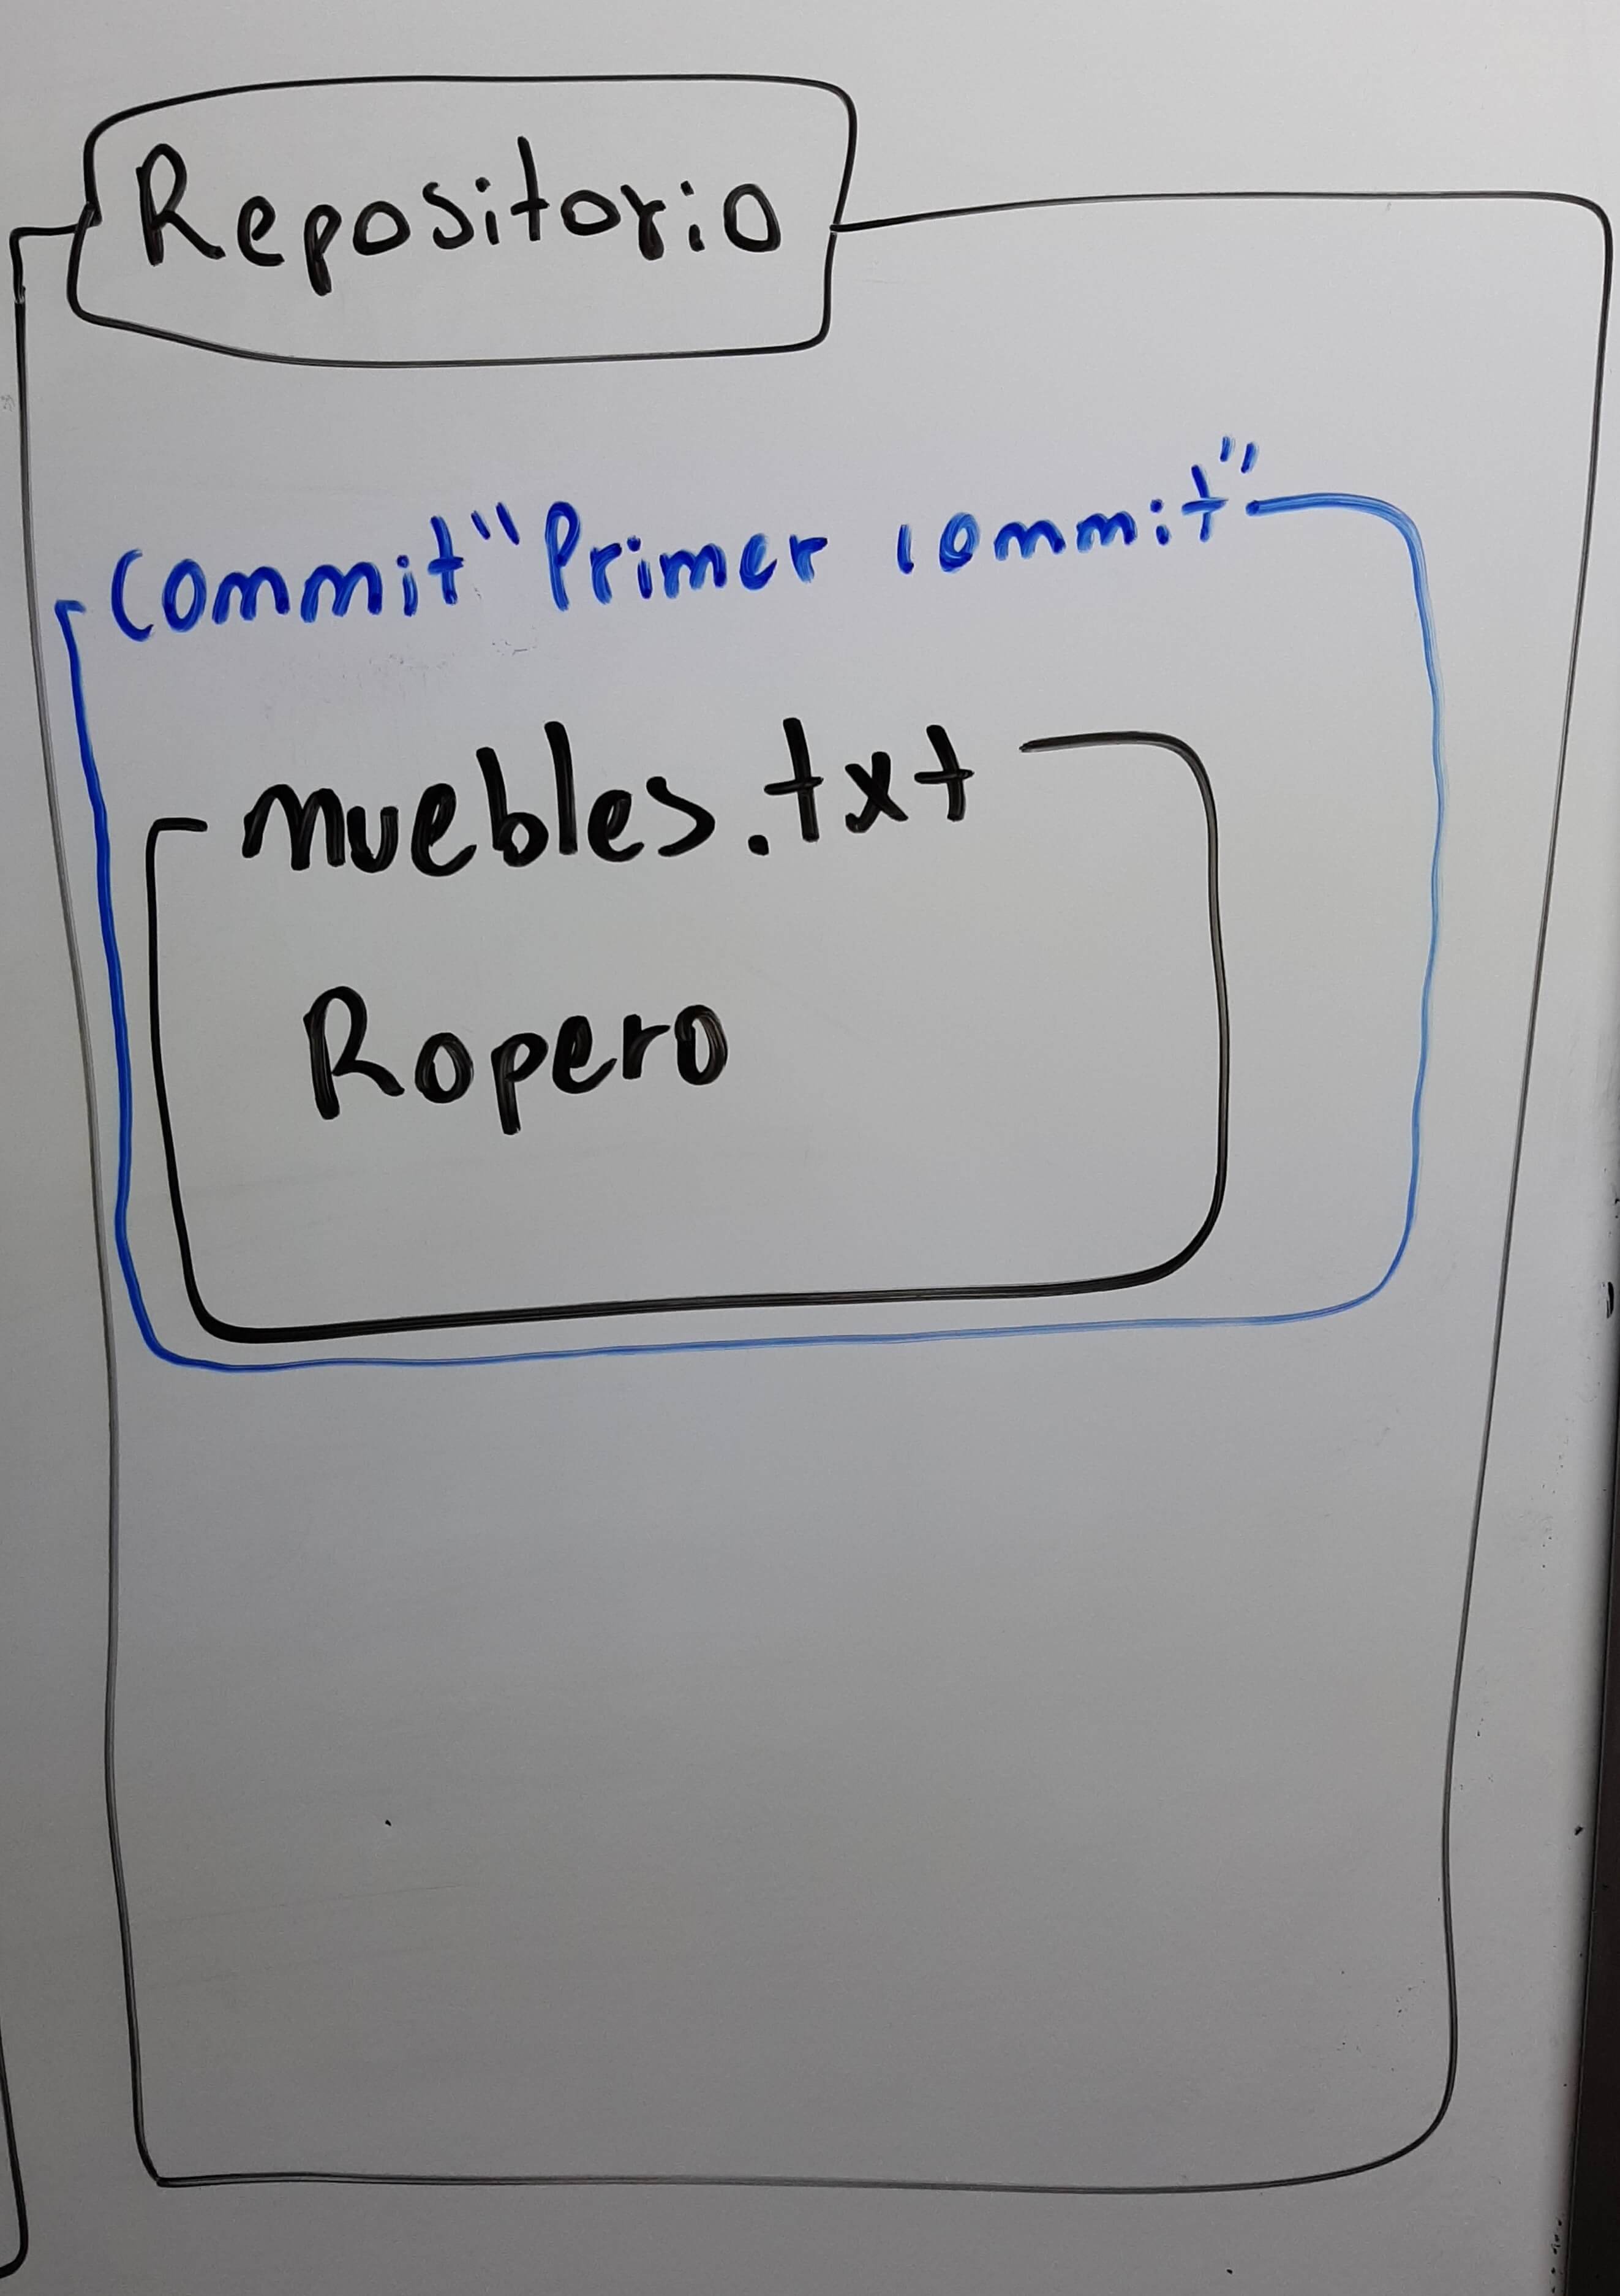 Repositorio
Commit "Primer commit"
muebles.txt
Ropero